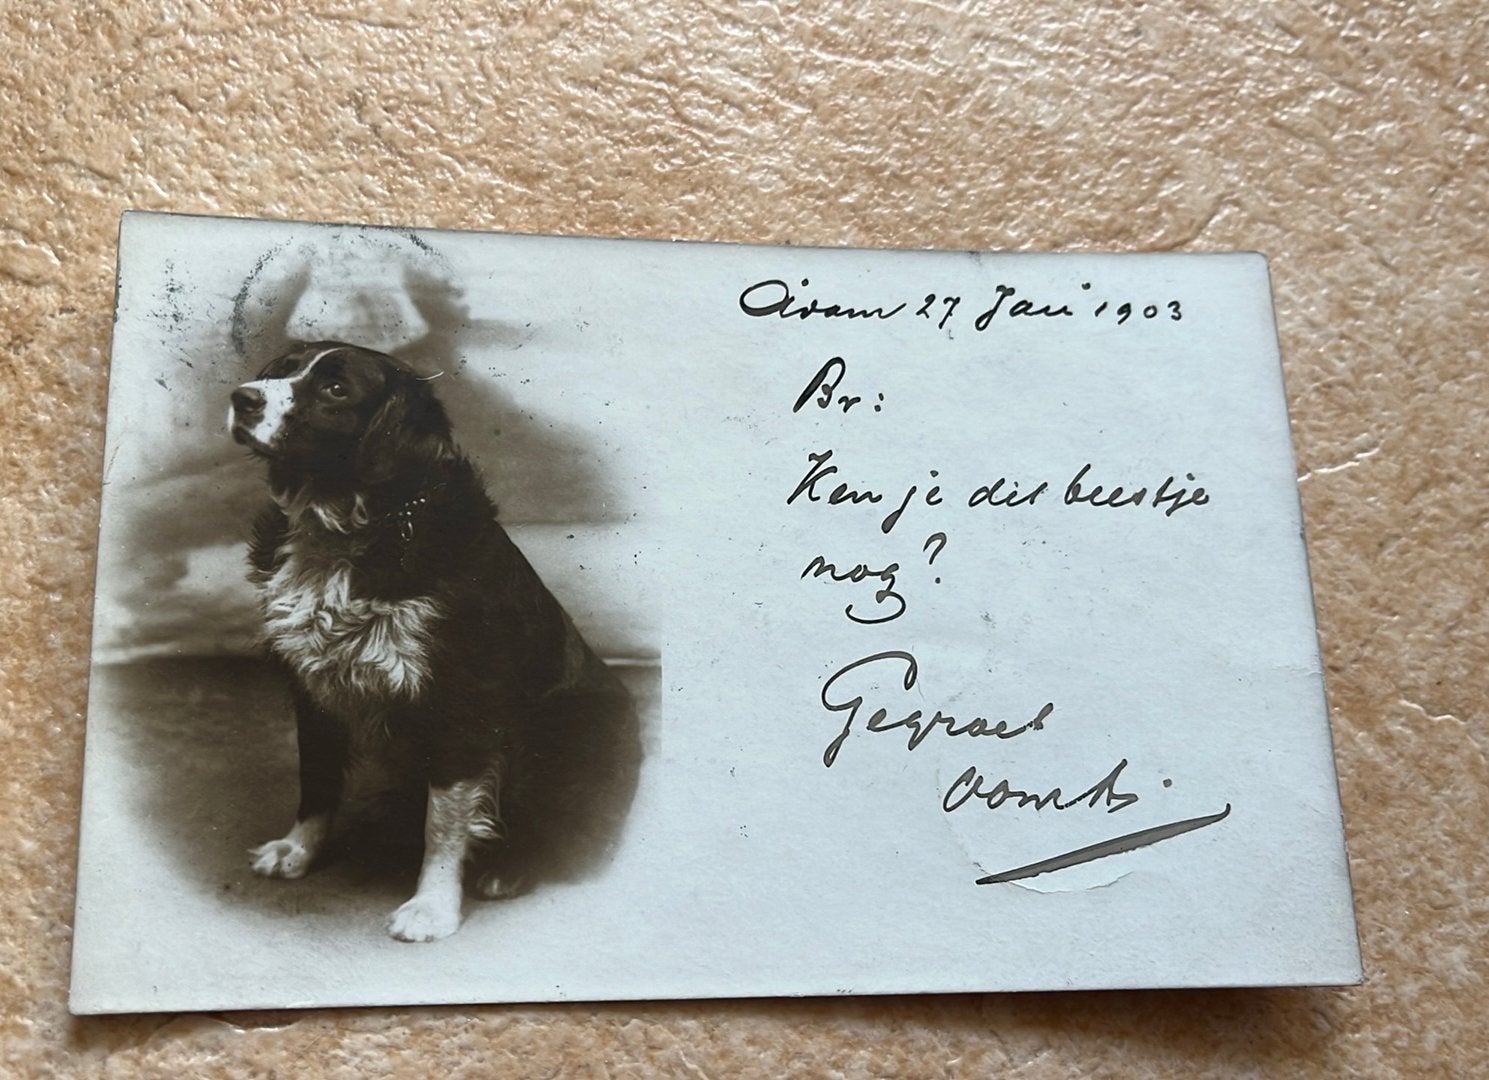 27 Jan 1903
Br:
Ken je dit beestje
nog?
Gegroet